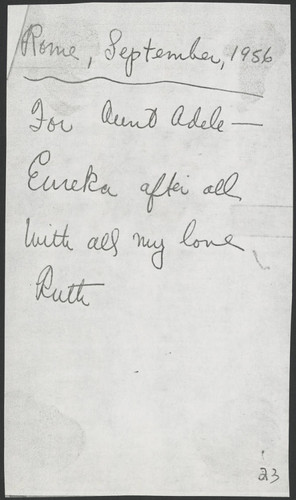 Rome, September, 1956
For Aunt Adele —
Eureka after all
With all my love
Ruth
23